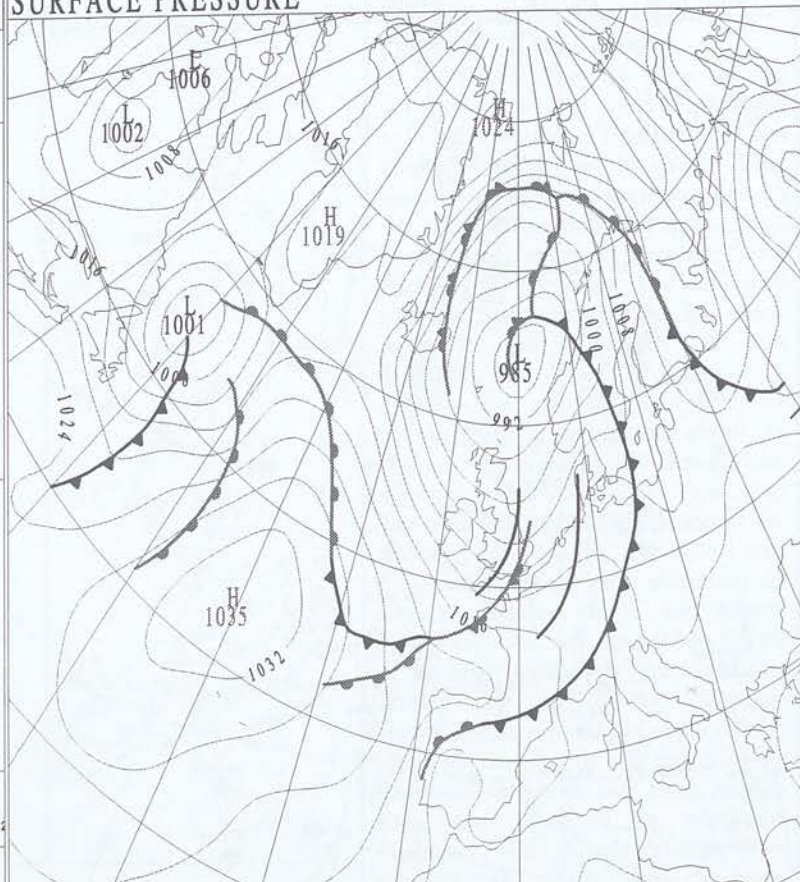 SURFACE PRESSURE
L
1006
L
1002
1008
1016
H
1024
H
1019
1016
L
1001
1008
1000
1008
L
985
992
1024
H
1035
1016
1032